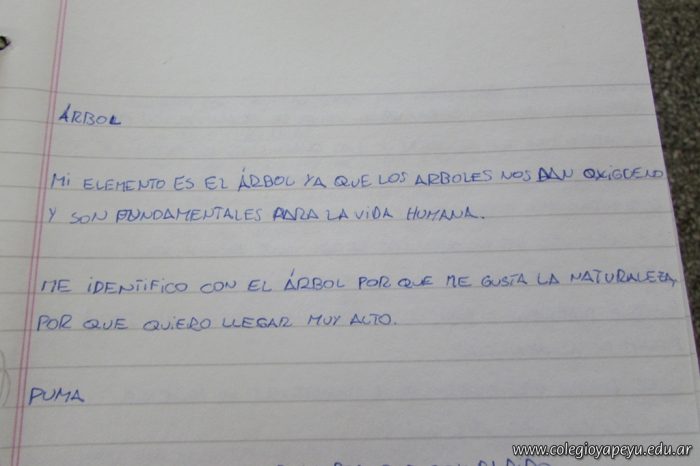 ÁRBOL
MI ELEMENTO ES EL ÁRBOL YA QUE LOS ARBOLES NOS DAN OXIGUENO
Y SON FUNDAMENTALES PARA LA VIDA HUMANA.
ME IDENTIFICO CON EL ÁRBOL POR QUE ME GUSTA LA NATURALEZA,
POR QUE QUIERO LLEGAR MUY ALTO.
PUMA
www.colegioyapeyu.edu.ar